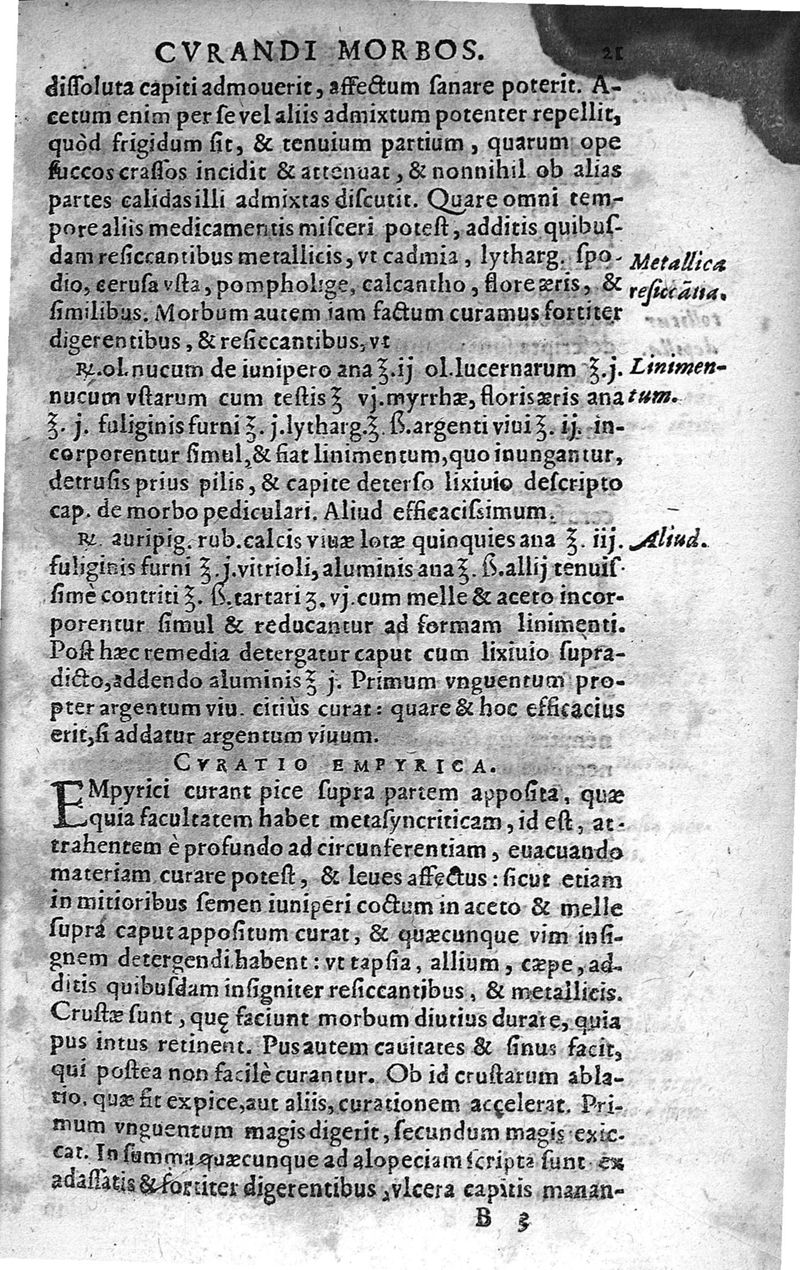 CVRANDI MORBOS. 21
dissoluta capiti admouerit, affectum sanare poterit. A-
cetum enim per se vel aliis admixtum potenter repellit,
quòd frigidum sit, & tenuium partium, quarum ope
succos crassos incidit & attenuat, & nonnihil ob alias
partes calidas illi admixtas discutit. Quare omni tem-
pore aliis medicamentis misceri potest, additis quibus-
dam resiccantibus metallicis, vt cadmia, lytharg. spo-
dio, cerusa vsta, pompholige, calcantho, flore æris, &
similibus. Morbum autem iam factum curamus fortiter
digerentibus, & resiccantibus, vt
Metallica
resiccãtia.
℞. ol. nucum de iunipero ana ℥. ij ol. lucernarum ℥. j.
nucum vstarum cum testis ℥ vj. myrrhæ, floris æris ana
℥. j. fuliginis furni ℥. j. lytharg. ℥. ß. argenti viui ℥. ij. in-
corporentur simul, & fiat linimentum, quo inungantur,
detrusis prius pilis, & capite deterso lixiuio descripto
cap. de morbo pediculari. Aliud efficacissimum.
Linimen-
tum.
℞. auripig. rub. calcis viuæ lotæ quinquies ana ℥. iij.
fuliginis furni ℥. j. vitrioli, aluminis ana ℥. ß. allij tenuis-
simè contriti ℥. ß. tartari ʒ. vj. cum melle & aceto incor-
porentur simul & reducantur ad formam linimenti.
Post hæc remedia detergatur caput cum lixiuio supra-
dicto, addendo aluminis ℥ j. Primum vnguentum pro-
pter argentum viu. citiùs curat: quare & hoc efficacius
erit, si addatur argentum viuum.
Aliud.
CVRATIO EMPYRICA.
EMpyrici curant pice supra partem apposita, quæ
quia facultatem habet metasyncriticam, id est, at-
trahentem è profundo ad circunferentiam, euacuando
materiam curare potest, & leues affectus: sicut etiam
in mitioribus semen iuniperi coctum in aceto & melle
supra caput appositum curat, & quæcunque vim insi-
gnem detergendi habent: vt tapsia, allium, cæpe, ad-
ditis quibusdam insigniter resiccantibus, & metallicis.
Crustæ sunt, quę faciunt morbum diutius durare, quia
pus intus retinent. Pus autem cauitates & sinus facit,
qui postea non facilè curantur. Ob id crustarum abla-
tio, quæ fit ex pice, aut aliis, curationem accelerat. Pri-
mum vnguentum magis digerit, secundum magis exic-
cat. In summa quæcunque ad alopeciam scripta sunt ex
adassatis & fortiter digerentibus, vlcera capitis manan-
B 3